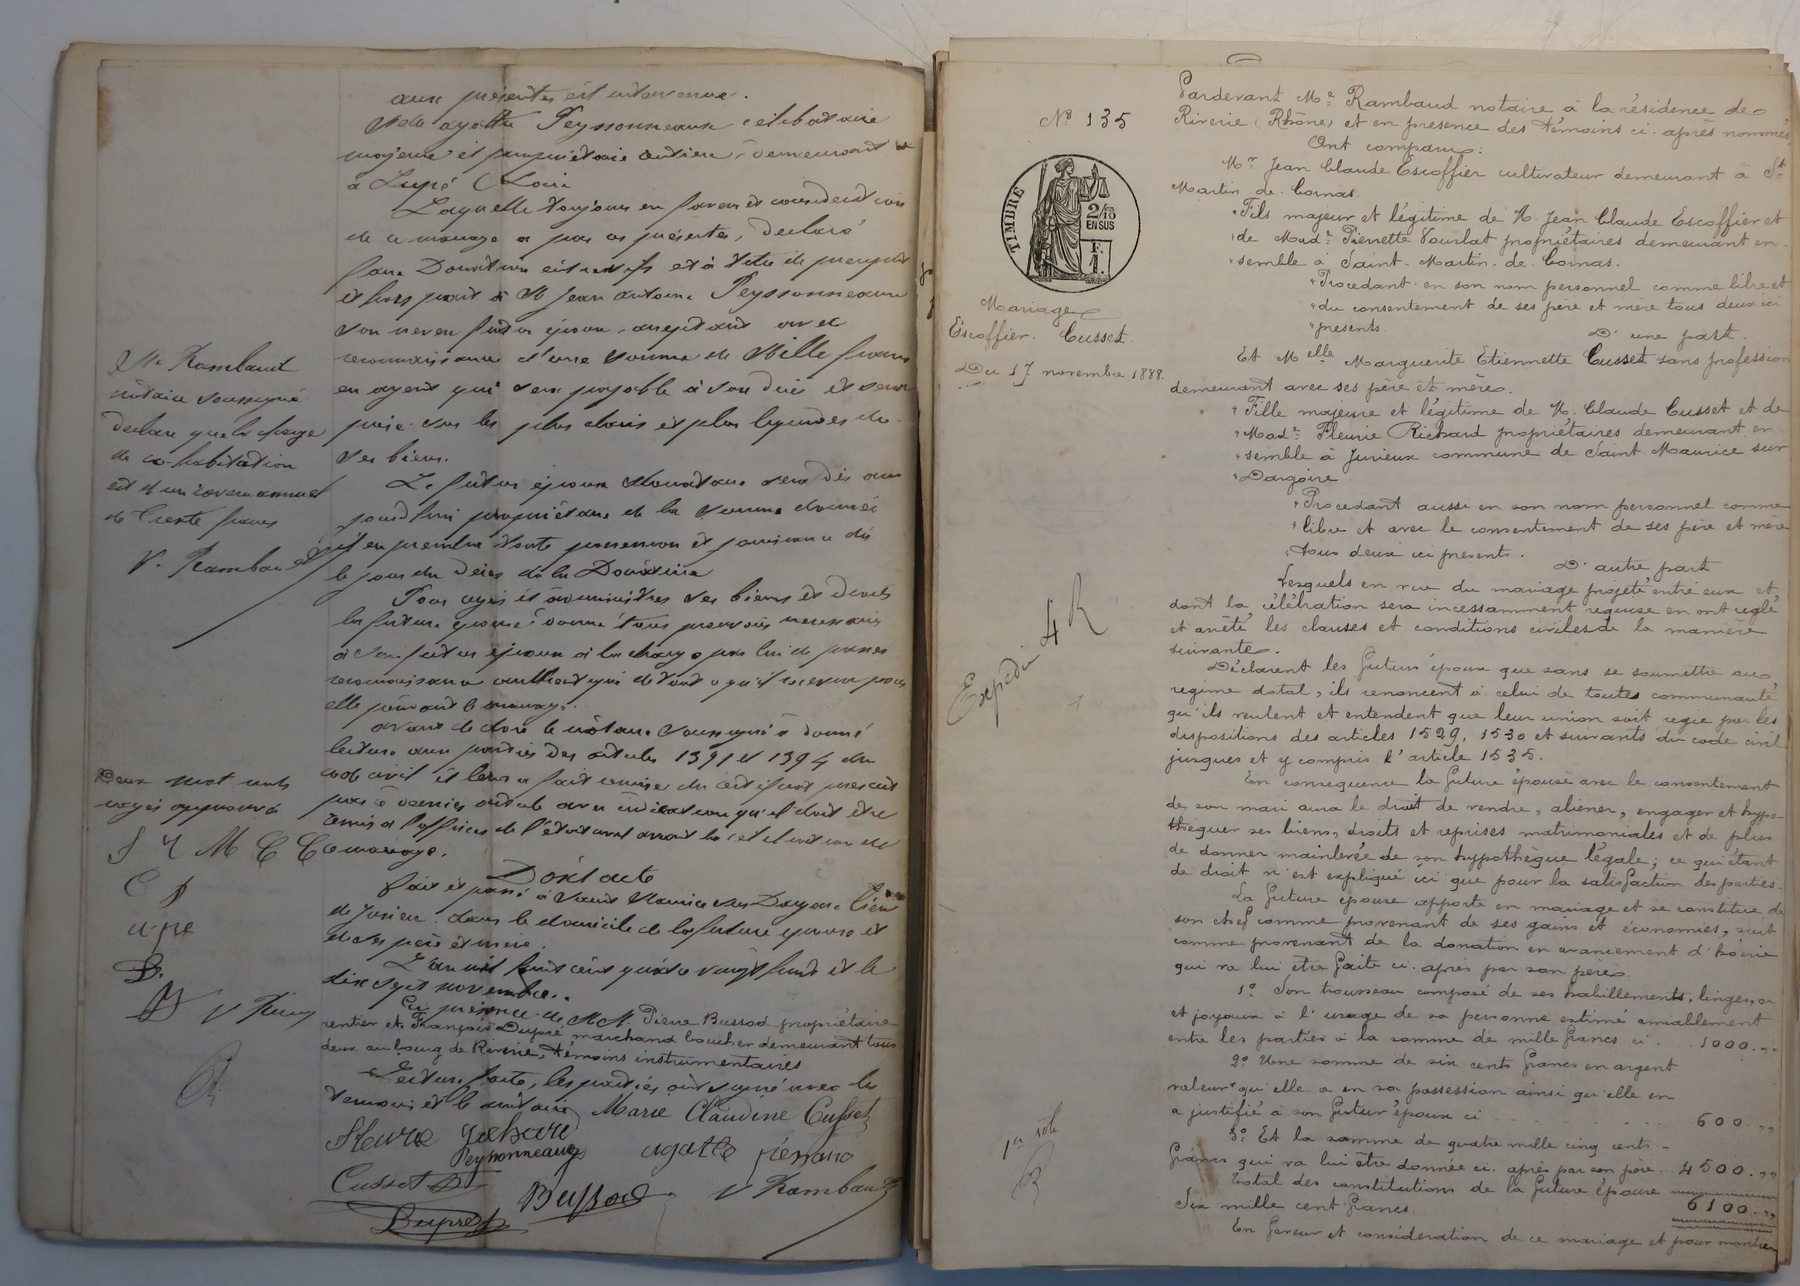 aux présentes est intervenue.
Melle agathe Peyssonneaux célibataire
majeure et propriétaire rentière, demeurant
à Lupé (Loire
Laquelle toujours en faveur et considération
de ce mariage a par ces présentes, déclaré
faire Donation entrevifs et à titre de préciput
et hors part à M Jean antoine Peyssonneaux
son neveu futur époux, acceptant avec
reconnaissance d'une somme de Mille francs
en argent qui sera payable à son décès et sera
prise sur les plus clairs et plus liquides de
ses biens.
Le futur époux donataire sera dès au
jourd'hui propriétaire de la somme donnée
il en prendra toute possession et jouissance dès
le jour du décès de la Donatrice
Pour régir et administrer ses biens et droits
la future épouse donne tous pouvoirs nécessaires
à son futur époux à la charge par lui de passer
reconnaissance authentique de tout ce qu'il recevra pour
elle pendant le mariage.
avant de clore le notaire soussigné a donné
lecture aux parties des articles 1391 et 1394 du
code civil et leur a fait remise du certificat prescrit
par ce dernier article avec indication qu'il doit être
remis à l'officier de l'état civil avant la célébration de
mariage.
Dont acte
fait et passé à Saint Maurice sur Dargoire lieu
de Jurieu dans le domicile de la future épouse et
de ses père et mère.
L'an mil huit cent quatre vingt huit et le
dix sept novembre.
En présence de MM. Pierre Bussod propriétaire
rentier et François Dupré marchand boucher demeurant tous
deux au bourg de Riverie, témoins instrumentaires.
Lecture faite, les parties ont signé avec les
témoins et le notaire Marie Claudine Cusset
Peyssonneaux agathe
Cusset Bussod V Rambaud
Dupré
Me Rambaud
notaire soussigné
déclare que la charge
de co-habitation
est d'un revenu annuel
de trente francs
V. Rambaud
Deux mot nuls
rayés approuvés
N° 135
TIMBRE
2/10
EN SUS
F.
1.
Mariage
Escoffier. Cusset.
Du 17 novembre 1888.
4 R
Expédié
1er rôle
Pardevant Me Rambaud notaire à la résidence de
Riverie (Rhône) et en présence des témoins ci-après nommés
Ont comparu:
Mr Jean Claude Escoffier cultivateur demeurant à St
Martin. de. Cornas.
"Fils majeur et légitime de M. Jean Claude Escoffier et
"de Made Pierrette Vourlat propriétaires demeurant en-
"semble à Saint. Martin. de. Cornas.
"Procedant en son nom personnel comme libre et
"du consentement de ses père et mère tous deux ici
"présents. D'une part.
Et Melle Marguerite Etiennette Cusset sans profession
demeurant avec ses père et mère.
"Fille majeure et légitime de M. Claude Cusset et de
"Made Fleurie Richard propriétaires demeurant en-
"semble à Jurieux commune de Saint. Maurice sur
"Dargoire
"Procedant aussi en son nom personnel comme
"libre et avec le consentement de ses père et mère
"tous deux ici présents.
D'autre part
Lesquels en vue du mariage projeté entre eux et
dont la célébration sera incessamment requise en ont réglé
et arrêté les clauses et conditions civiles de la manière
suivante.
Déclarent les futurs époux que sans se soumettre au
régime dotal, ils renoncent à celui de toutes communauté
qu'ils veulent et entendent que leur union soit régie par les
dispositions des articles 1529, 1530 et suivants du code civil
jusques et y compris l'article 1535.
En conséquence la future épouse avec le consentement
de son mari aura le droit de vendre, aliéner, engager et hypo-
théquer ses biens, droits et reprises matrimoniales et de plus
de donner mainlevée de son hypothèque légale; ce qui étant
de droit n'est expliqué ici que pour la satisfaction des parties.
La future épouse apporte en mariage et se constitue de
son chef comme provenant de ses gains et économies, soit
comme provenant de la donation en avancement d'hoirie
qui va lui être faite ci. après par son père
1° Son trousseau composé de ses habillements, linges, or
et joyaux à l'usage de sa personne estimé amiablement
entre les parties à la somme de mille francs ci. . 1000. ""
2° Une somme de six cents francs en argent
valeur qu'elle a en sa possession ainsi qu'elle en
a justifié à son futur époux ci 600. ""
3° Et la somme de quatre mille cinq cents
francs qui va lui être donnée ci. après par son père 4500. ""
Total des constitutions de la future épouse
Six mille cent francs. 6100. ""
En faveur et considération de ce mariage et pour